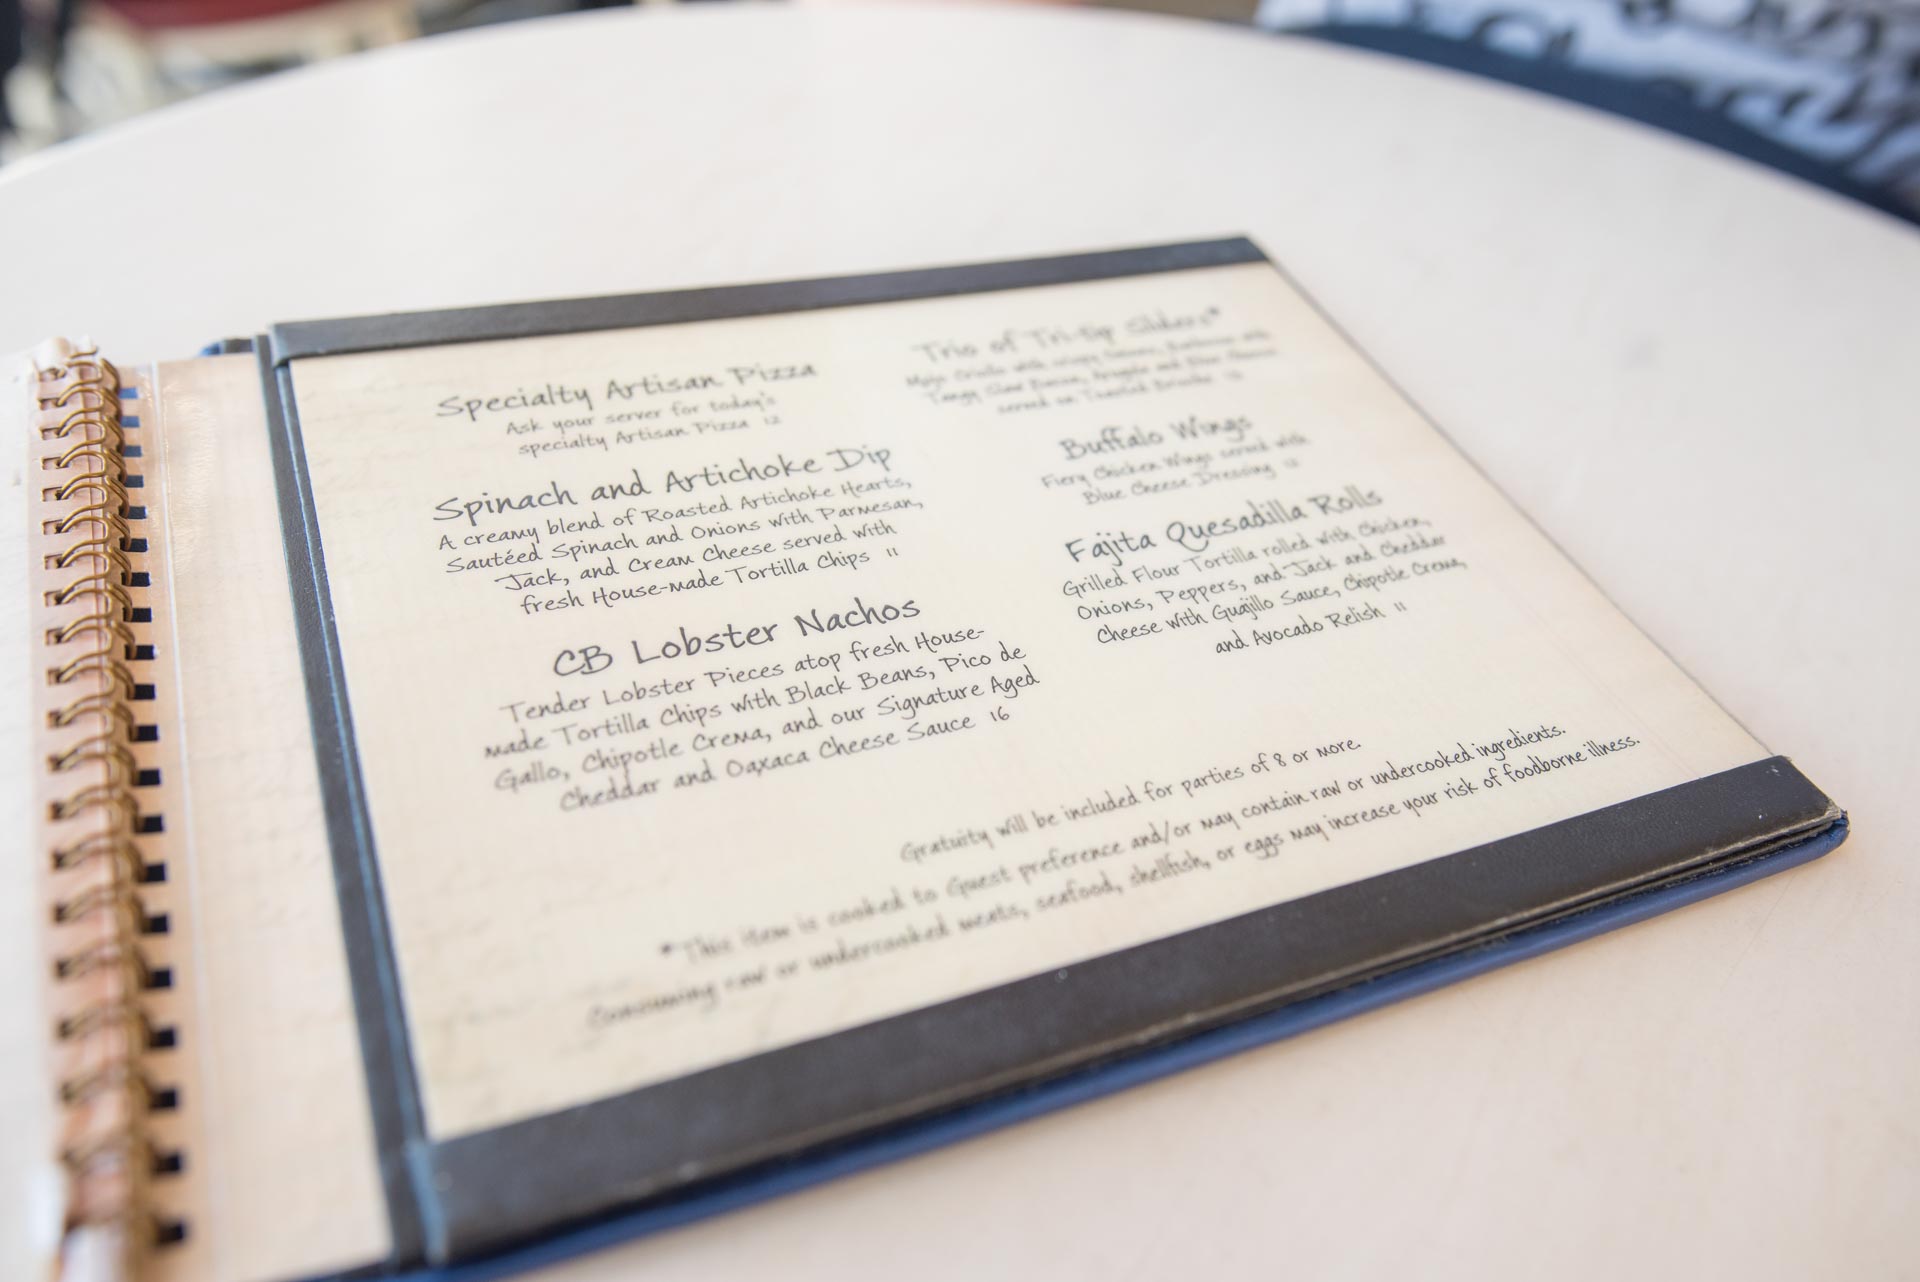 Specialty Artisan Pizza
Ask your server for today's
specialty Artisan Pizza 12
Spinach and Artichoke Dip
A creamy blend of Roasted Artichoke Hearts,
Sautéed Spinach and Onions with Parmesan,
Jack, and Cream Cheese served with
fresh House-made Tortilla Chips 11
CB Lobster Nachos
Tender Lobster Pieces atop fresh House-
made Tortilla Chips with Black Beans, Pico de
Gallo, Chipotle Crema, and our Signature Aged
Cheddar and Oaxaca Cheese Sauce 16
Trio of Tri-tip Sliders*
Mojo Criollo with crispy
Tangy Slaw Arugula and Blue Cheese
served on Toasted Brioche
Buffalo Wings
Fiery Chicken Wings served with
Blue Cheese Dressing 12
Fajita Quesadilla Rolls
Grilled Flour Tortilla rolled with Chicken,
Onions, Peppers, and Jack and Cheddar
Cheese with Guajillo Sauce, Chipotle Crema,
and Avocado Relish 11
Gratuity will be included for parties of 8 or more.
*This item is cooked to Guest preference and/or may contain raw or undercooked ingredients.
Consuming raw or undercooked meats, seafood, shellfish, or eggs may increase your risk of foodborne illness.